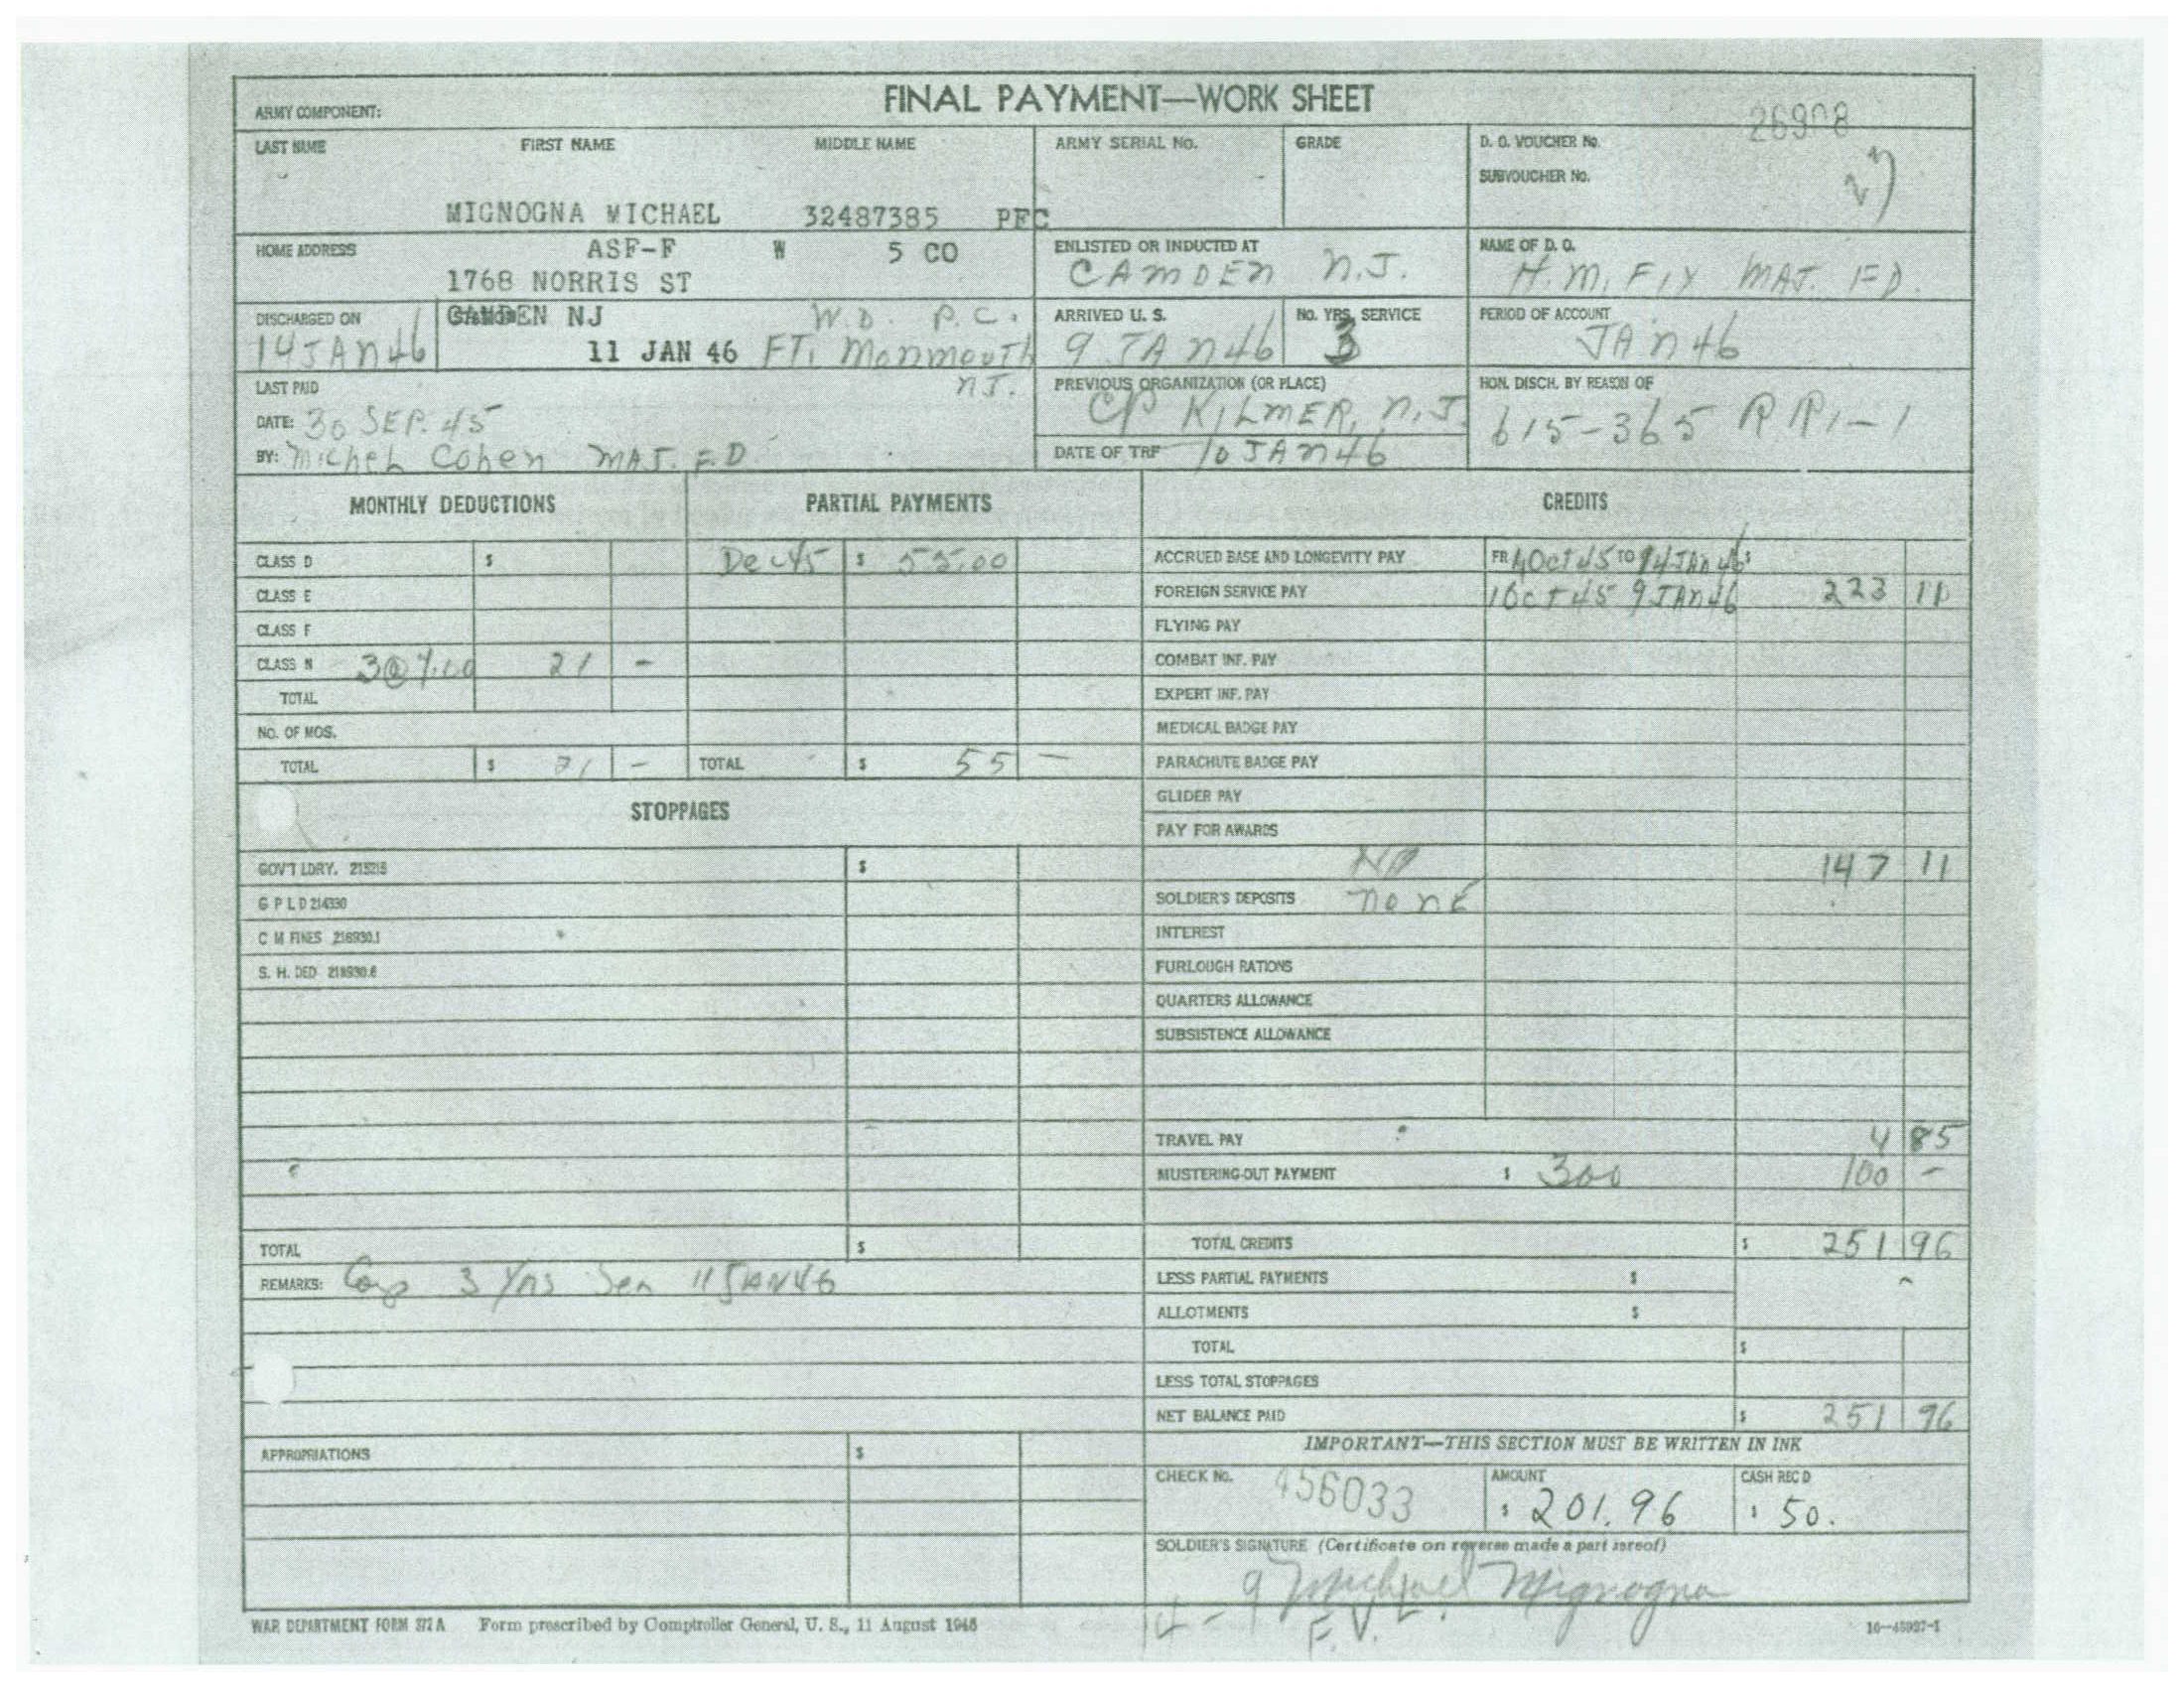 FINAL PAYMENT—WORK SHEET
ARMY COMPONENT:
26908
LAST NAME FIRST NAME MIDDLE NAME ARMY SERIAL No. GRADE D. O. VOUCHER No.
SUBVOUCHER No.
MIGNOGNA MICHAEL 32487385 PFC
HOME ADDRESS ASF-F W 5 CO
1768 NORRIS ST
CAMDEN NJ
11 JAN 46
ENLISTED OR INDUCTED AT
CAMDEN N.J.
NAME OF D. O.
H.M. FIX MAJ. F.D.
DISCHARGED ON
14 JAN 46
W.D. P.C.
FT. Monmouth
N.J.
ARRIVED U. S.
9 JAN 46
No. YRS. SERVICE
3
PERIOD OF ACCOUNT
JAN 46
LAST PAID
DATE: 30 SEP. 45
BY: Michel Cohen MAJ. F.D.
PREVIOUS ORGANIZATION (OR PLACE)
CP KILMER, N.J.
DATE OF TRF 10 JAN 46
HON. DISCH. BY REASON OF
615-365 RR1-1
MONTHLY DEDUCTIONS PARTIAL PAYMENTS CREDITS
CLASS D $ Dec 45 $ 55.00 ACCRUED BASE AND LONGEVITY PAY FR 1 Oct 45 TO 14 JAN 46 $
CLASS E FOREIGN SERVICE PAY 1 Oct 45 9 JAN 46 223 11
CLASS F FLYING PAY
CLASS N 3@7.00 21 - COMBAT INF. PAY
TOTAL EXPERT INF. PAY
NO. OF MOS. MEDICAL BADGE PAY
TOTAL $ 21 - TOTAL $ 55 — PARACHUTE BADGE PAY
GLIDER PAY
STOPPAGES
PAY FOR AWARDS
GOV'T LDRY. 215215 $ 147 11
G P L D 214330 SOLDIER'S DEPOSITS none
C M FINES 216930.1 INTEREST
S. H. DED 218930.6 FURLOUGH RATIONS
QUARTERS ALLOWANCE
SUBSISTENCE ALLOWANCE
TRAVEL PAY 4 85
MUSTERING-OUT PAYMENT $ 300 100 -
TOTAL $ TOTAL CREDITS $ 251 96
REMARKS: Comp 3 yrs Ser 11 JAN 46 LESS PARTIAL PAYMENTS $
ALLOTMENTS $
TOTAL $
LESS TOTAL STOPPAGES
NET BALANCE PAID $ 251 96
IMPORTANT—THIS SECTION MUST BE WRITTEN IN INK
APPROPRIATIONS $
CHECK No. 456033 AMOUNT $ 201.96 CASH REC'D $ 50.
SOLDIER'S SIGNATURE (Certificate on reverse made a part hereof)
Michael Mignogna
F.V.
WAR DEPARTMENT FORM 372 A Form prescribed by Comptroller General, U. S., 11 August 1945 16—45927-1